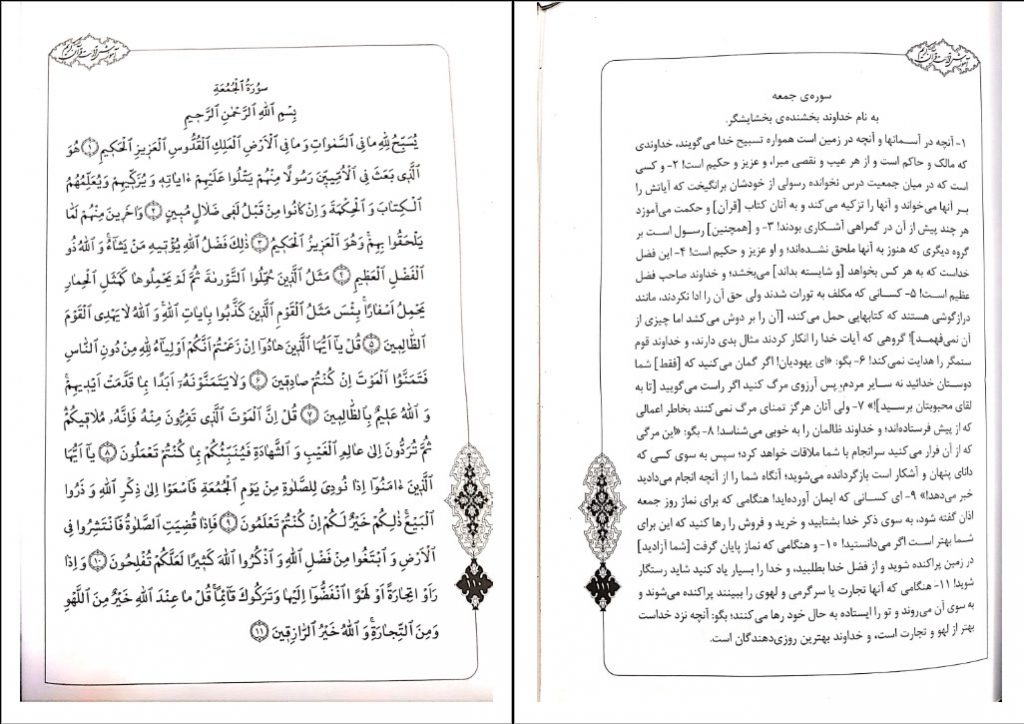 آموزش قرائت قرآن کریم
سوره‌ی جمعه
به نام خداوند بخشنده‌ی بخشایشگر.
۱- آنچه در آسمانها و آنچه در زمین است همواره تسبیح خدا می‌گویند، خداوندی
که مالک و حاکم است و از هر عیب و نقصی مبراء و عزیز و حکیم است! ۲- و کسی
است که در میان جمعیت درس نخوانده رسولی از خودشان برانگیخت که آیاتش را
بر آنها می‌خواند و آنها را تزکیه می‌کند و به آنان کتاب [قرآن] و حکمت می‌آموزد
هر چند پیش از آن در گمراهی آشکاری بودند! ۳- و [همچنین] رسول است بر
گروه دیگری که هنوز به آنها ملحق نشده‌اند؛ و او عزیز و حکیم است! ۴- این فضل
خداست که به هر کس بخواهد [و شایسته بداند] می‌بخشد؛ و خداوند صاحب فضل
عظیم است! ۵- کسانی که مکلف به تورات شدند ولی حق آن را ادا نکردند، مانند
درازگوشی هستند که کتابهایی حمل می‌کند، [آن را بر دوش می‌کشد اما چیزی از
آن نمی‌فهمد]! گروهی که آیات خدا را انکار کردند مثال بدی دارند، و خداوند قوم
ستمگر را هدایت نمی‌کند! ۶- بگو: «ای یهودیان! اگر گمان می‌کنید که [فقط] شما
دوستان خدائید نه سایر مردم، پس آرزوی مرگ کنید اگر راست می‌گویید [تا به
لقای محبوبتان برسید]!» ۷- ولی آنان هرگز تمنای مرگ نمی‌کنند بخاطر اعمالی
که از پیش فرستاده‌اند؛ و خداوند ظالمان را به خوبی می‌شناسد! ۸- بگو: «این مرگی
که از آن فرار می‌کنید سرانجام با شما ملاقات خواهد کرد؛ سپس به سوی کسی که
دانای پنهان و آشکار است بازگردانده می‌شوید؛ آنگاه شما را از آنچه انجام می‌دادید
خبر می‌دهد!» ۹- ای کسانی که ایمان آورده‌اید! هنگامی که برای نماز روز جمعه
اذان گفته شود، به سوی ذکر خدا بشتابید و خرید و فروش را رها کنید که این برای
شما بهتر است اگر می‌دانستید! ۱۰- و هنگامی که نماز پایان گرفت [شما آزادید]
در زمین پراکنده شوید و از فضل خدا بطلبید، و خدا را بسیار یاد کنید شاید رستگار
شوید! ۱۱- هنگامی که آنها تجارت یا سرگرمی و لهوی را ببینند پراکنده می‌شوند و
به سوی آن می‌روند و تو را ایستاده به حال خود رها می‌کنند؛ بگو: آنچه نزد خداست
بهتر از لهو و تجارت است، و خداوند بهترین روزی‌دهندگان است.
آموزش قرائت قرآن کریم
سُورَةُ الْجُمُعَةِ
بِسْمِ اللهِ الرَّحْمٰنِ الرَّحِیمِ
یُسَبِّحُ لِلّٰهِ مَا فِی السَّمٰوَاتِ وَ مَا فِی الْاَرْضِ الْمَلِکِ الْقُدُّوسِ الْعَزِیزِ الْحَکِیمِ ﴿۱﴾ هُوَ
الَّذِی بَعَثَ فِی الْاُمِّیِّینَ رَسُولًا مِنْهُمْ یَتْلُوا عَلَیْهِمْ ءَایَاتِهِ وَ یُزَکِّیهِمْ وَ یُعَلِّمُهُمُ
الْکِتَابَ وَ الْحِکْمَةَ وَ اِنْ کَانُوا مِنْ قَبْلُ لَفِی ضَلَالٍ مُبِینٍ ﴿۲﴾ وَ ءَاخَرِینَ مِنْهُمْ لَمَّا
یَلْحَقُوا بِهِمْ وَ هُوَ الْعَزِیزُ الْحَکِیمُ ﴿۳﴾ ذٰلِکَ فَضْلُ اللهِ یُؤْتِیهِ مَنْ یَشَآءُ وَ اللهُ ذُو
الْفَضْلِ الْعَظِیمِ ﴿۴﴾ مَثَلُ الَّذِینَ حُمِّلُوا التَّوْرٰیةَ ثُمَّ لَمْ یَحْمِلُوهَا کَمَثَلِ الْحِمَارِ
یَحْمِلُ اَسْفَارًا بِئْسَ مَثَلُ الْقَوْمِ الَّذِینَ کَذَّبُوا بِایَاتِ اللهِ وَ اللهُ لَا یَهْدِی الْقَوْمَ
الظَّالِمِینَ ﴿۵﴾ قُلْ یَا اَیُّهَا الَّذِینَ هَادُوا اِنْ زَعَمْتُمْ اَنَّکُمْ اَوْلِیَآءُ لِلّٰهِ مِنْ دُونِ النَّاسِ
فَتَمَنَّوُا الْمَوْتَ اِنْ کُنْتُمْ صَادِقِینَ ﴿۶﴾ وَ لَا یَتَمَنَّوْنَهُ اَبَدًا بِمَا قَدَّمَتْ اَیْدِیهِمْ
وَ اللهُ عَلِیمٌ بِالظَّالِمِینَ ﴿۷﴾ قُلْ اِنَّ الْمَوْتَ الَّذِی تَفِرُّونَ مِنْهُ فَاِنَّهُ مُلَاقِیکُمْ
ثُمَّ تُرَدُّونَ اِلٰی عَالِمِ الْغَیْبِ وَ الشَّهَادَةِ فَیُنَبِّئُکُمْ بِمَا کُنْتُمْ تَعْمَلُونَ ﴿۸﴾ یَا اَیُّهَا
الَّذِینَ ءَامَنُوا اِذَا نُودِیَ لِلصَّلٰوةِ مِنْ یَوْمِ الْجُمُعَةِ فَاسْعَوْا اِلٰی ذِکْرِ اللهِ وَ ذَرُوا
الْبَیْعَ ذٰلِکُمْ خَیْرٌ لَکُمْ اِنْ کُنْتُمْ تَعْلَمُونَ ﴿۹﴾ فَاِذَا قُضِیَتِ الصَّلٰوةُ فَانْتَشِرُوا فِی
الْاَرْضِ وَ ابْتَغُوا مِنْ فَضْلِ اللهِ وَ اذْکُرُوا اللهَ کَثِیرًا لَعَلَّکُمْ تُفْلِحُونَ ﴿۱۰﴾ وَ اِذَا
رَاَوْا تِجَارَةً اَوْ لَهْوًا انْفَضُّوا اِلَیْهَا وَ تَرَکُوکَ قَآئِمًا قُلْ مَا عِنْدَ اللهِ خَیْرٌ مِنَ اللَّهْوِ
وَ مِنَ التِّجَارَةِ وَ اللهُ خَیْرُ الرَّازِقِینَ ﴿۱۱﴾